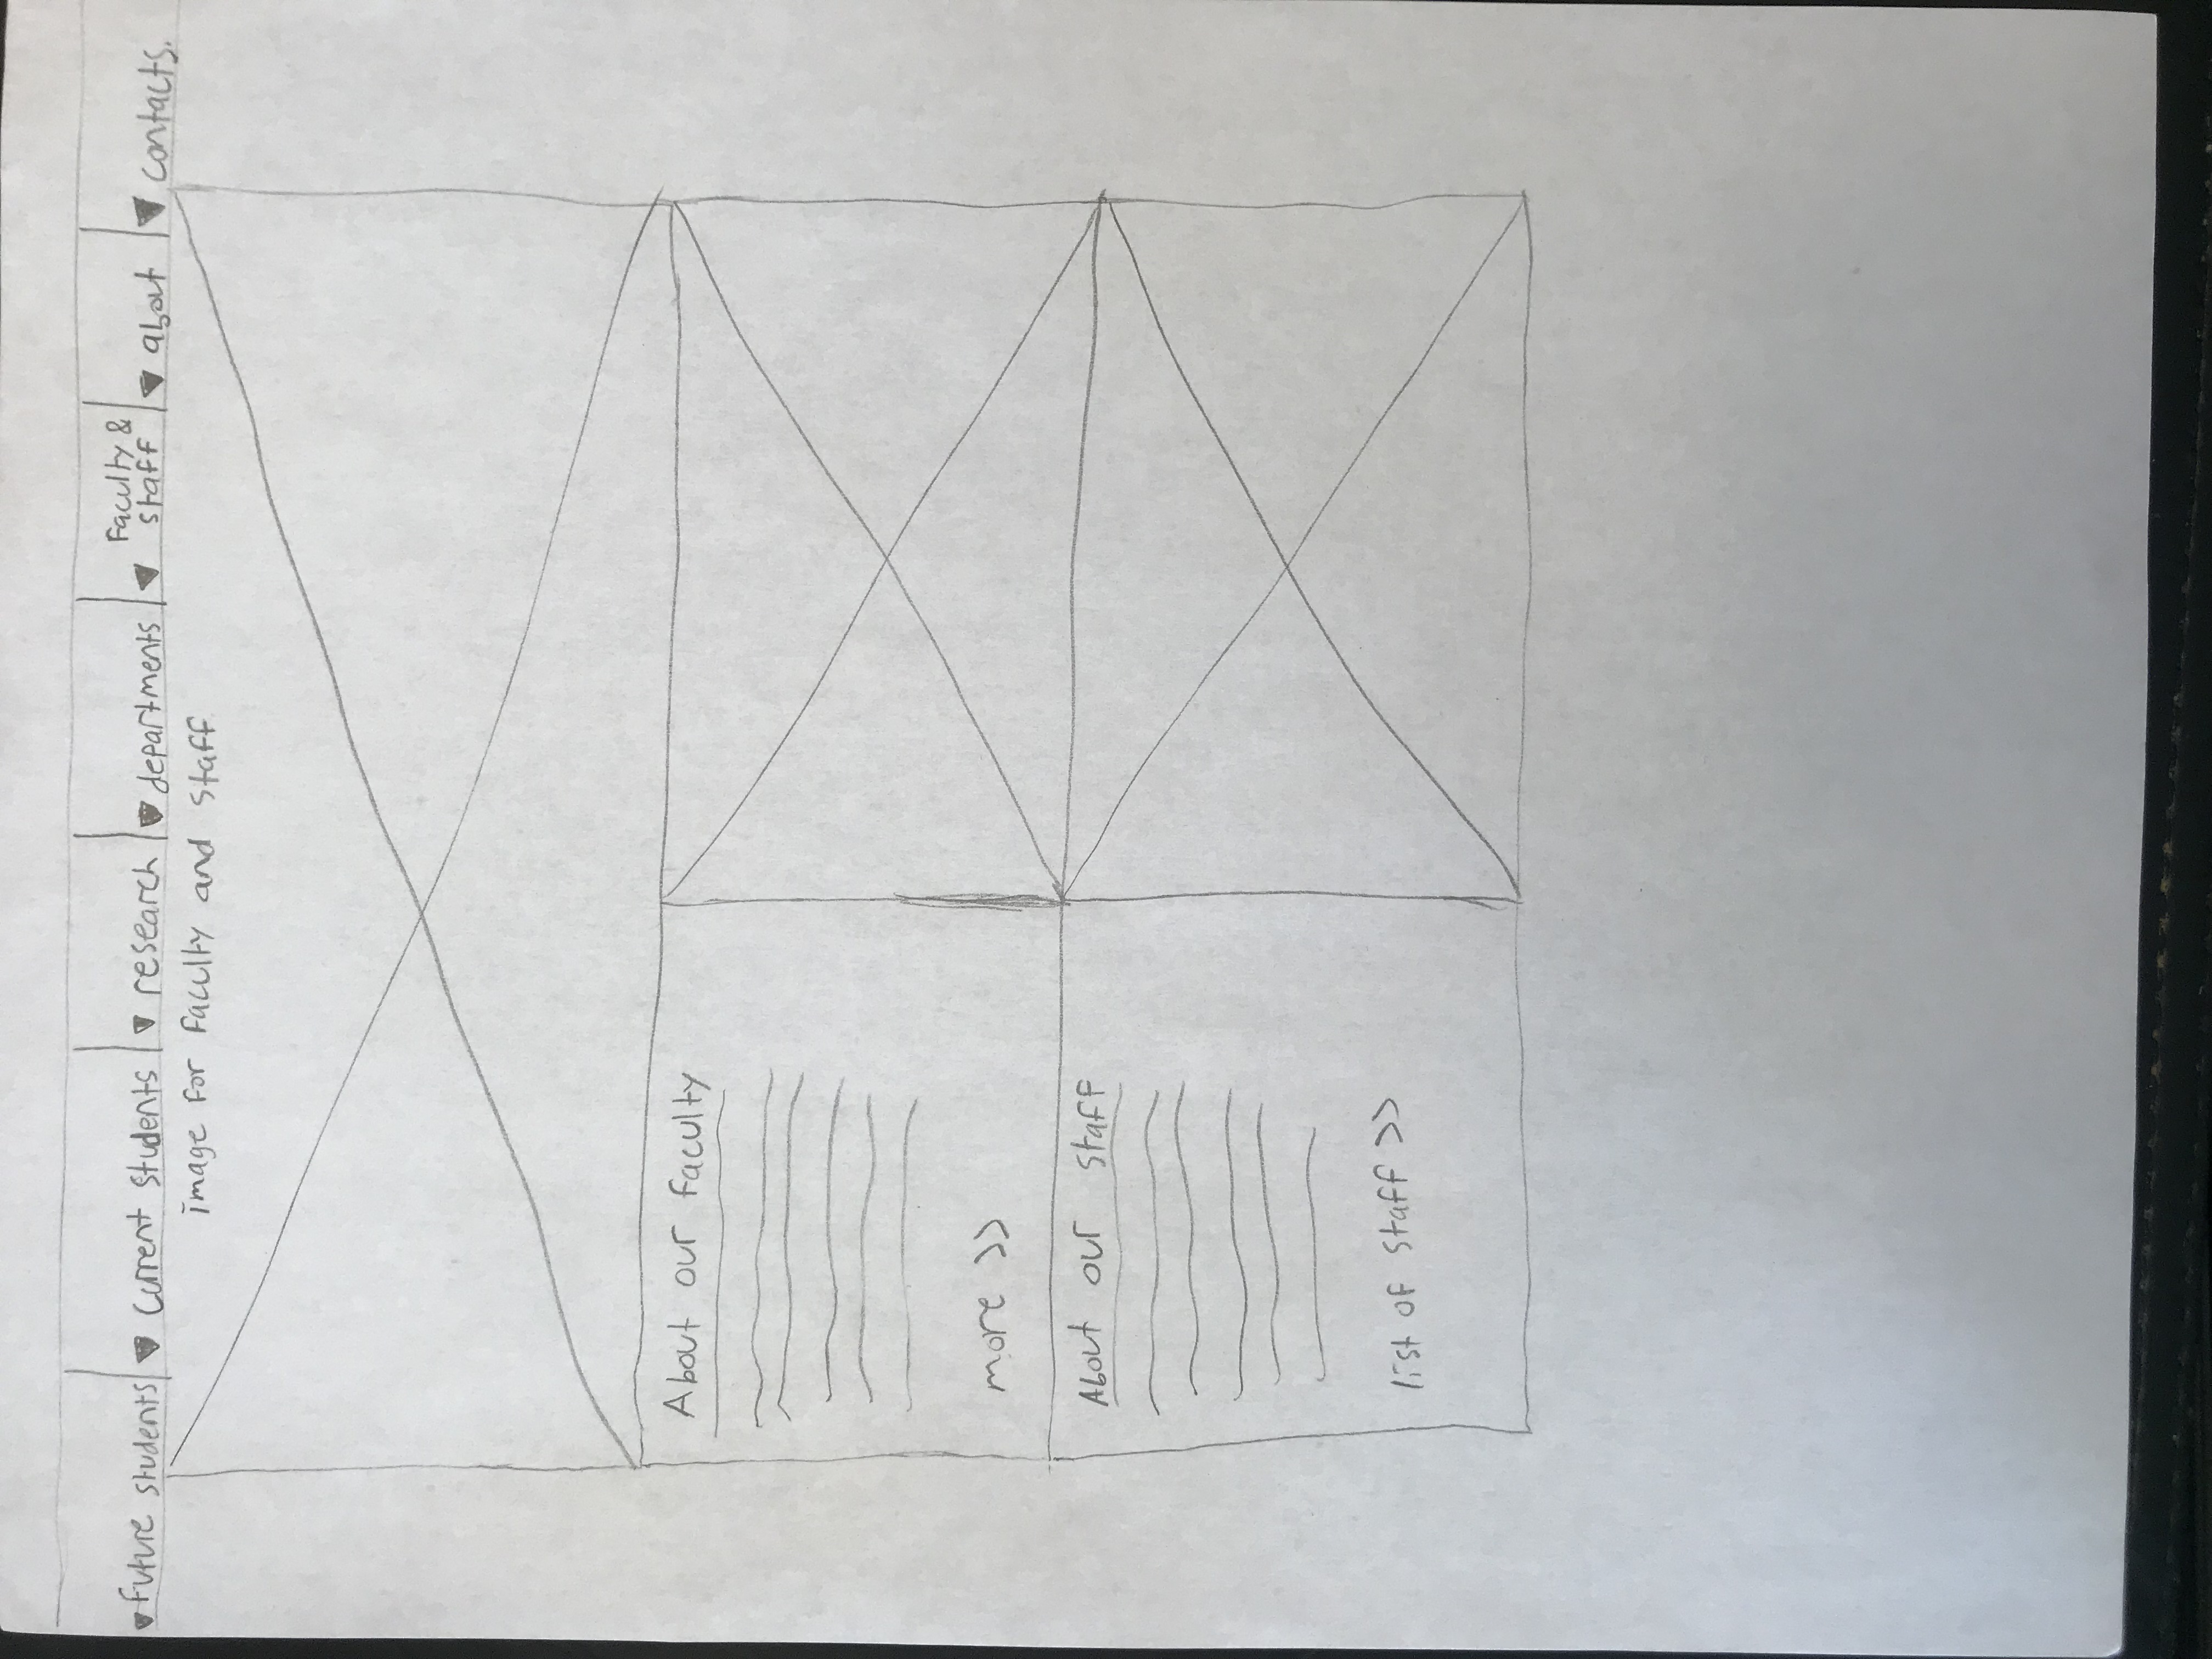 future students current students research departments Faculty & staff about contacts.
image for faculty and staff
About our faculty
more >>
About our staff
list of staff >>